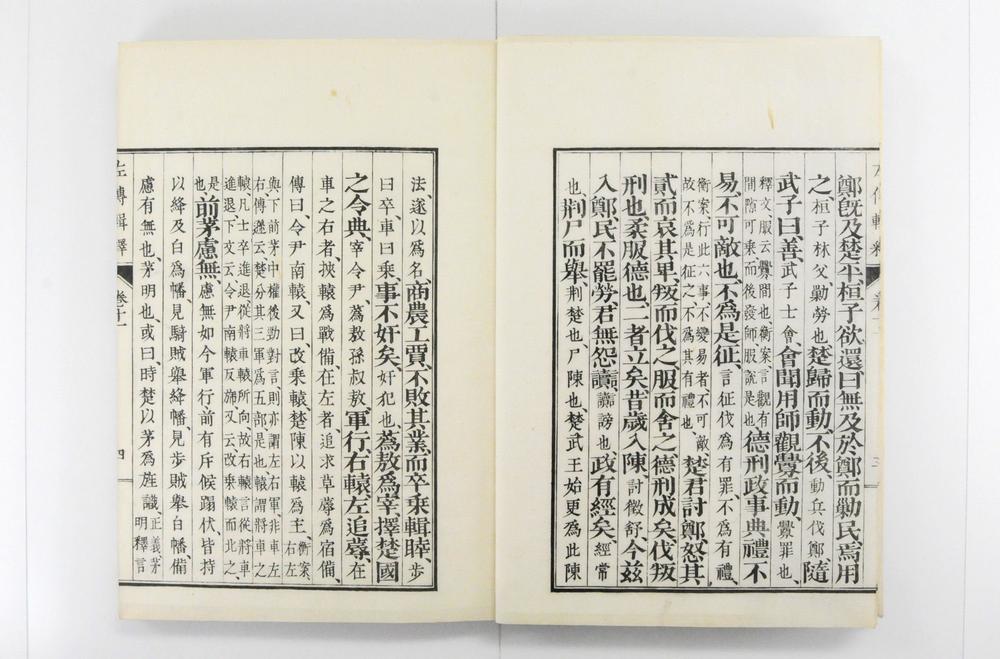 鄭旣及楚平桓子欲還曰無及於鄭而勦民焉用
之、桓子林父勦勞也、楚歸而動、不後、動兵伐鄭、隨
武子曰、善、武子士會、會聞用師觀釁而動、釁罪也、
釋文、服云釁間也衡案言觀有
間隙可乘而後發師服說是也
德刑政事典禮不
易、不可敵也、不爲是征、言征伐爲有罪、不爲有禮、
衡案行此六事、不變易者、不可敵、
故不爲是征之、不爲其有禮也、
楚君討鄭、怒其
貳而哀其卑、叛而伐之、服而舍之、德刑成矣、伐叛
刑也、柔服德也、二者立矣、昔歲入陳、討徵舒、今茲
入鄭、民不罷勞、君無怨讟、讟謗也、政有經矣、經常
也、荆尸而擧、荆楚也、尸陳也、楚武王始更爲此陳
左傳輯釋 卷十一 四
法、遂以爲名、商農工賈、不敗其業、而卒乘輯睦、步
曰卒、車曰乘、事不奸矣、奸犯也、蔿敖爲宰、擇楚國
之令典、宰令尹、蔿敖孫叔敖、軍行、右轅、左追蓐、在
車之右者、挾轅爲戰備、在左者、追求草蓐爲宿備、
傳曰、令尹南轅、又曰、改乘轅、楚陳以轅爲主、衡案
右左
與下前茅中權後勁對言、則亦謂左右軍、非車左
右、傳遂云楚分其三軍爲五部是也、轅謂將車之
轅、凡士卒進退從將車轅所向、故右轅言從將車
進退、下文云令尹南轅反旆、又云改乘轅而北之、
是
也、
前茅慮無、慮無如今軍行前有斥候蹋伏、皆持
以絳及白爲幡、見騎賊擧絳幡、見步賊擧白幡、備
慮有無也、茅明也、或曰、時楚以茅爲旌識、正義茅
明釋言